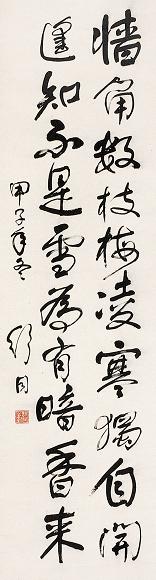 墙角数枝梅凌寒独自开
遥知不是雪为有暗香来
甲子年冬
舒同